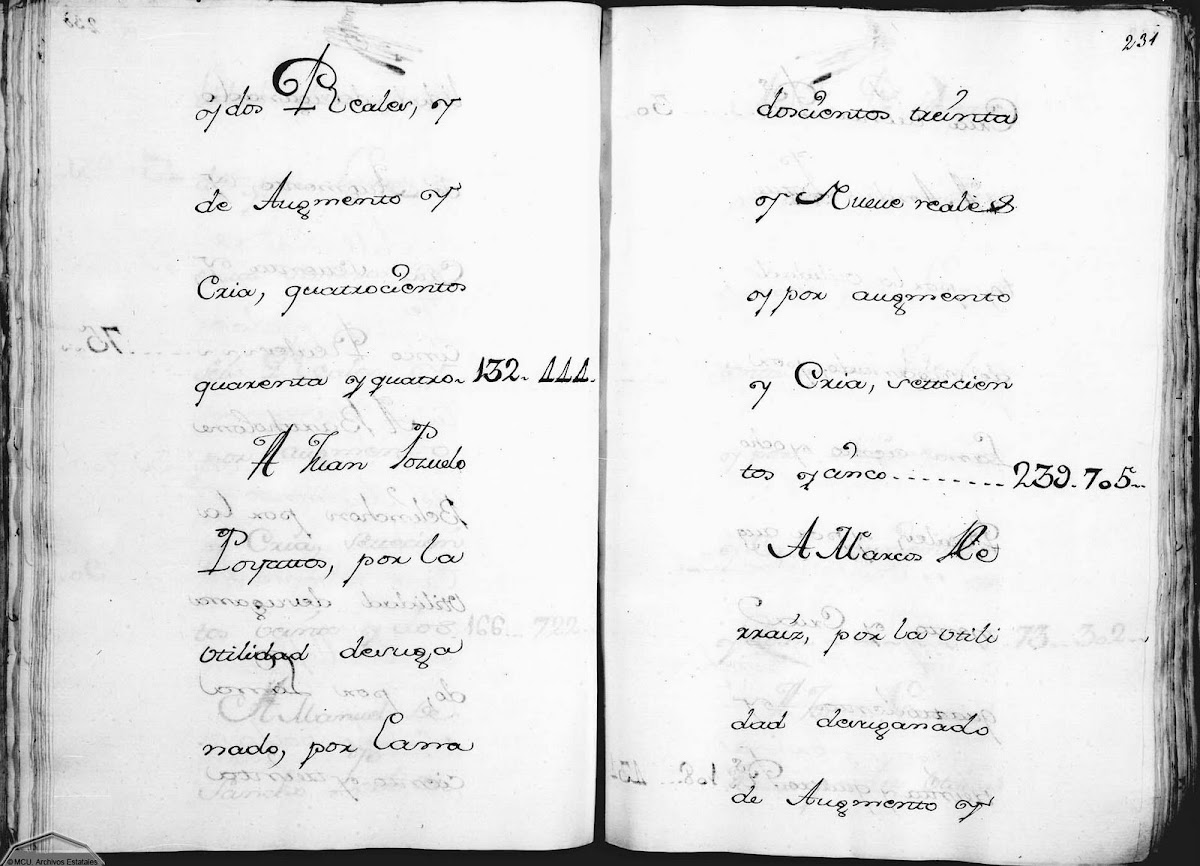 y dos Reales, y
de Augmento y
Cria, quatrocientos
quarenta y quatro. 132. 444.
A Juan Pozuelo
Poyattos, por la
Utilidad desuga
nado, por Lana
231
doscientos treinta
y Nueve reales
y por augmento
y Cria, settecien
tos y cinco......... 239. 705..
A Marcos He
rraiz, por la Utili
dad desuganado
de Augmento y
© MCU. Archivos Estatales